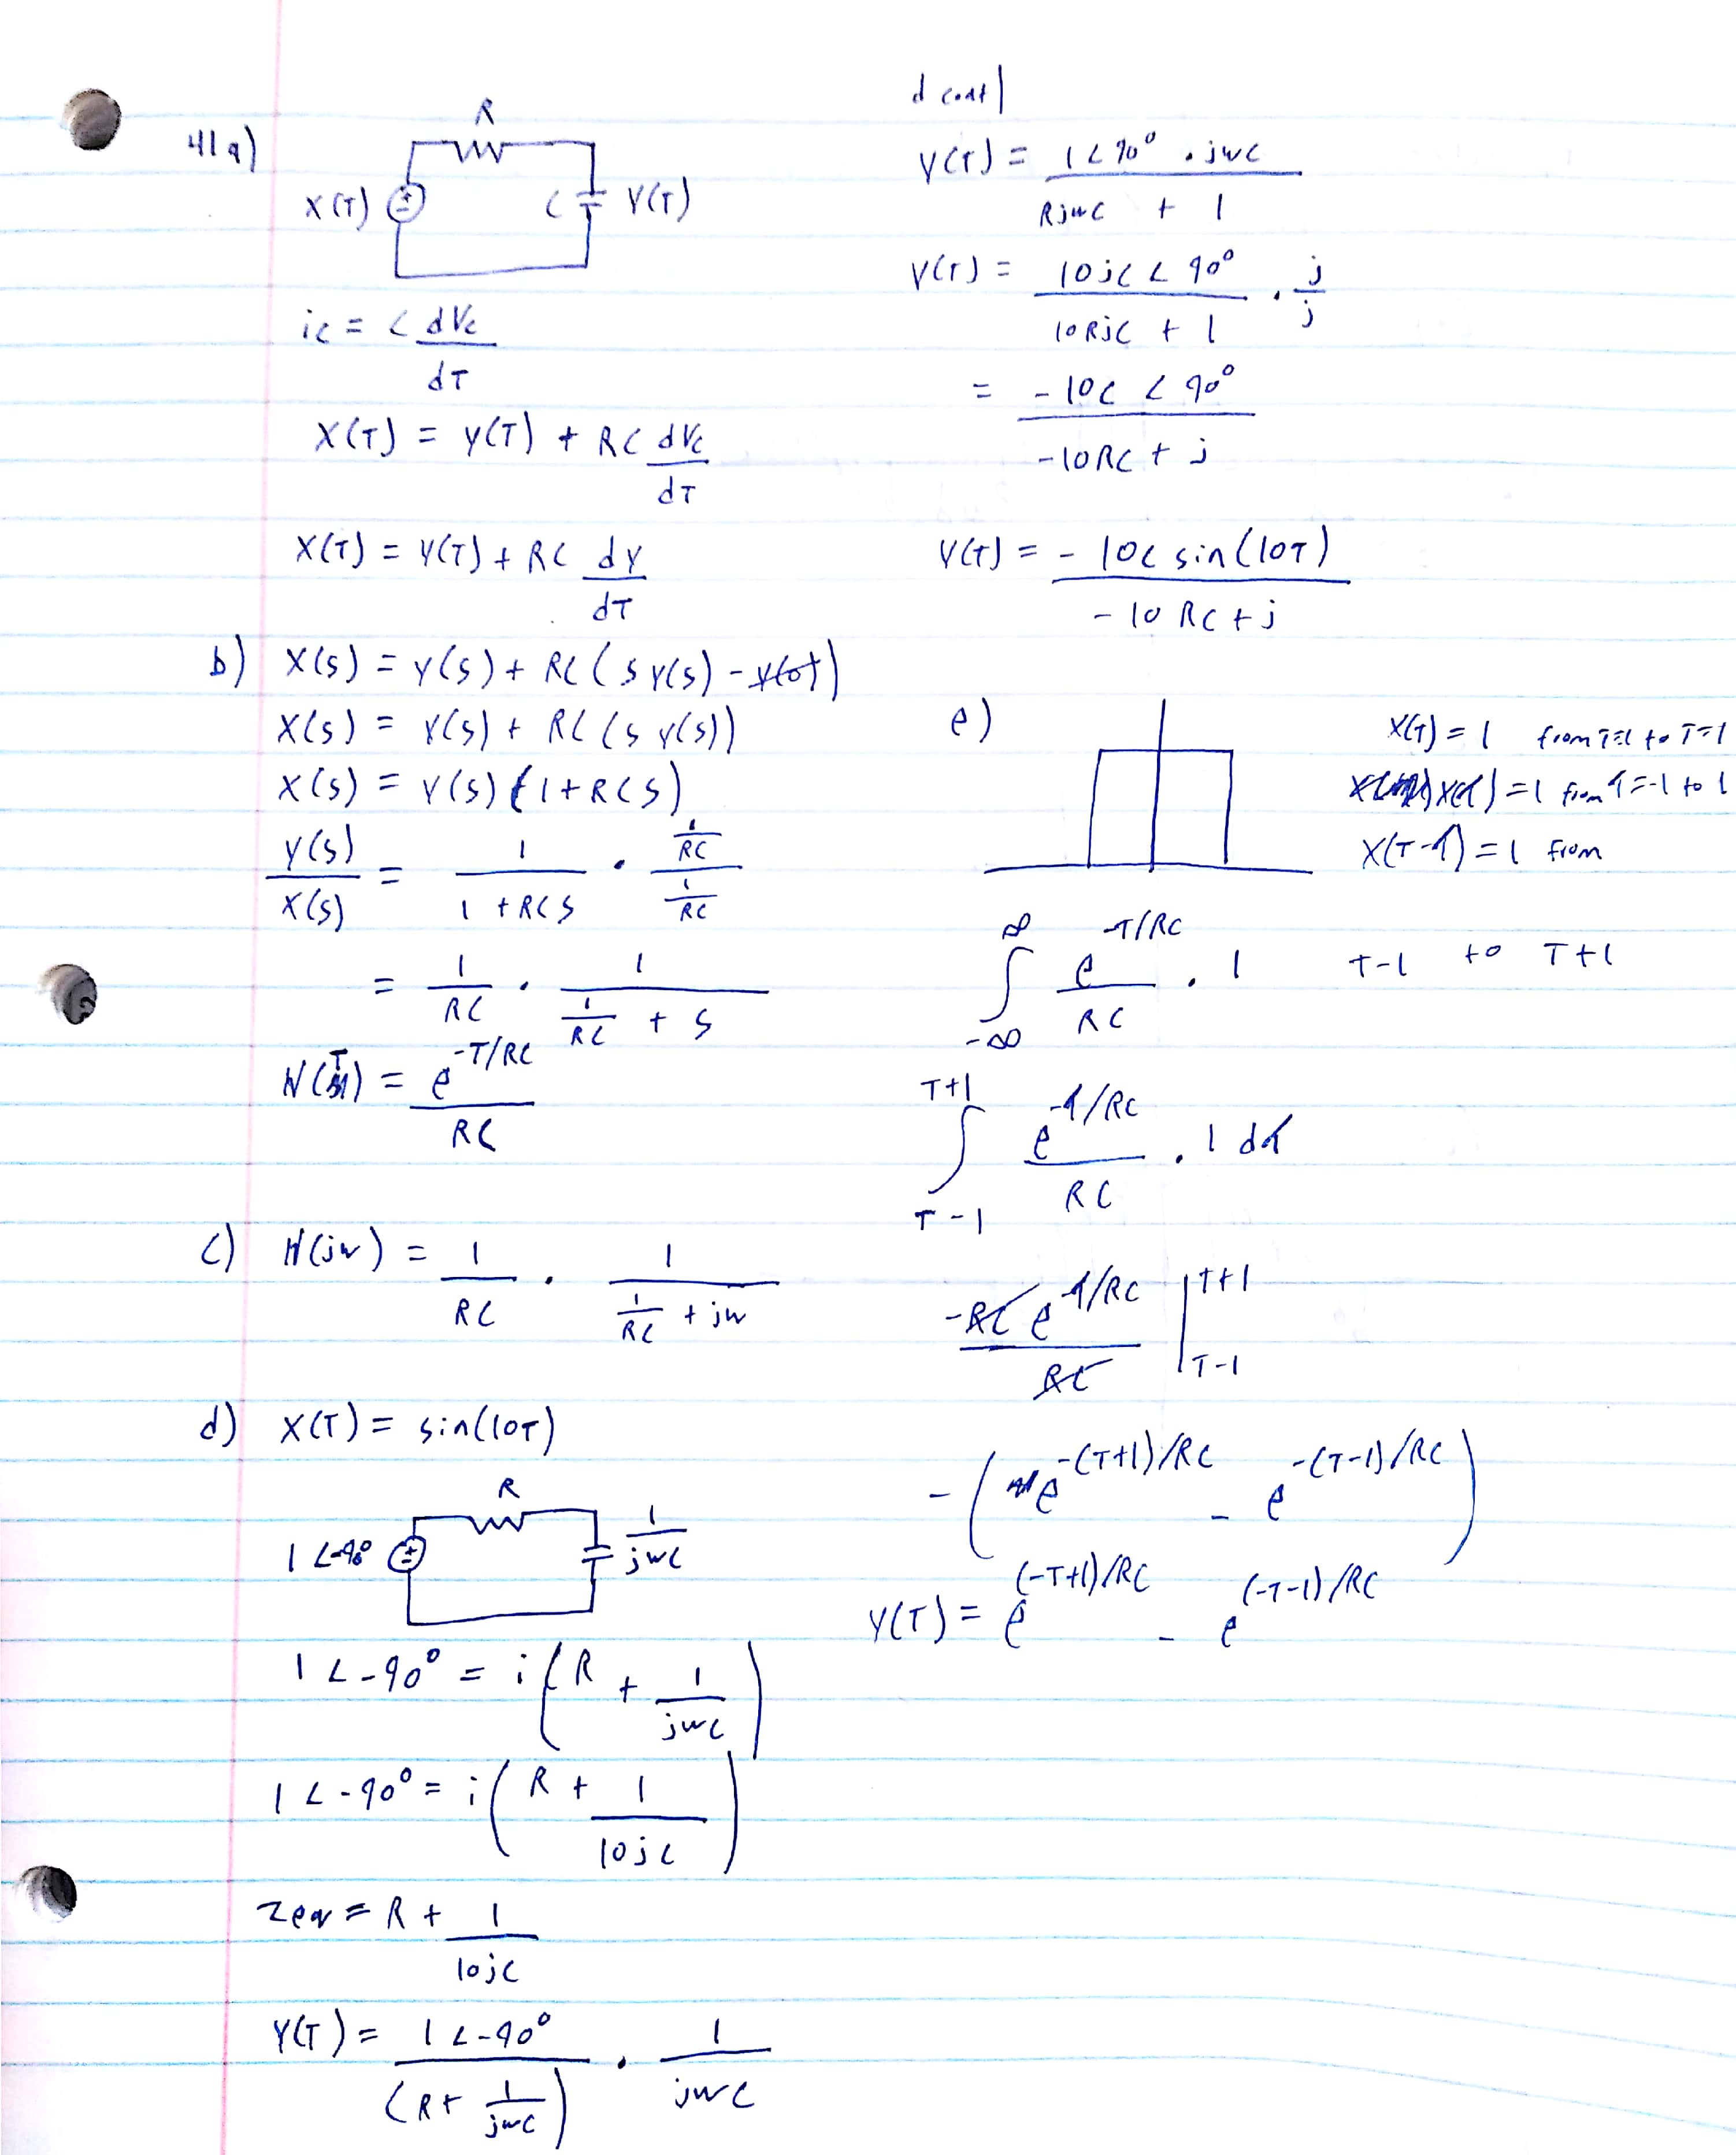 41a)
R
X(T) C Y(T)
ic = C dVc / dT
X(T) = y(T) + RC dVc / dT
X(T) = Y(T) + RC dy / dT
b) X(s) = y(s) + RC (s Y(s) - y(0+))
X(s) = Y(s) + RC (s y(s))
X(s) = Y(s) (1 + RCS)
Y(s) / X(s) = 1 / (1 + RCS) · (1/RC) / (1/RC)
= 1/RC · 1 / (1/RC + S)
H(T) = e^(-T/RC) / RC
c) H(jw) = 1/RC · 1 / (1/RC + jw)
d) X(T) = sin(10T)
R
1∠-90° 1/jwC
1∠-90° = i (R + 1/jwC)
1∠-90° = i (R + 1/10jC)
Zeq = R + 1/10jC
Y(T) = 1∠-90° / (R + 1/jwC) · 1/jwC
d cont
Y(T) = 1∠90° · jwC / (RjwC + 1)
Y(T) = 10jC∠90° / (10RjC + 1) · j/j
= -10C∠90° / (-10RC + j)
Y(T) = -10C sin(10T) / (-10RC + j)
e)
X(T) = 1 from T=1 to T=1
X(τ) = 1 from τ=-1 to 1
X(T-τ) = 1 from
∫_-∞^∞ e^(-T/RC) / RC · 1 T-1 to T+1
∫_T-1^T+1 e^(-τ/RC) / RC · 1 dτ
-RC e^(-τ/RC) / RC |_T-1^T+1
-(e^(-(T+1)/RC) - e^(-(T-1)/RC))
Y(T) = e^((-T+1)/RC) - e^((-T-1)/RC)